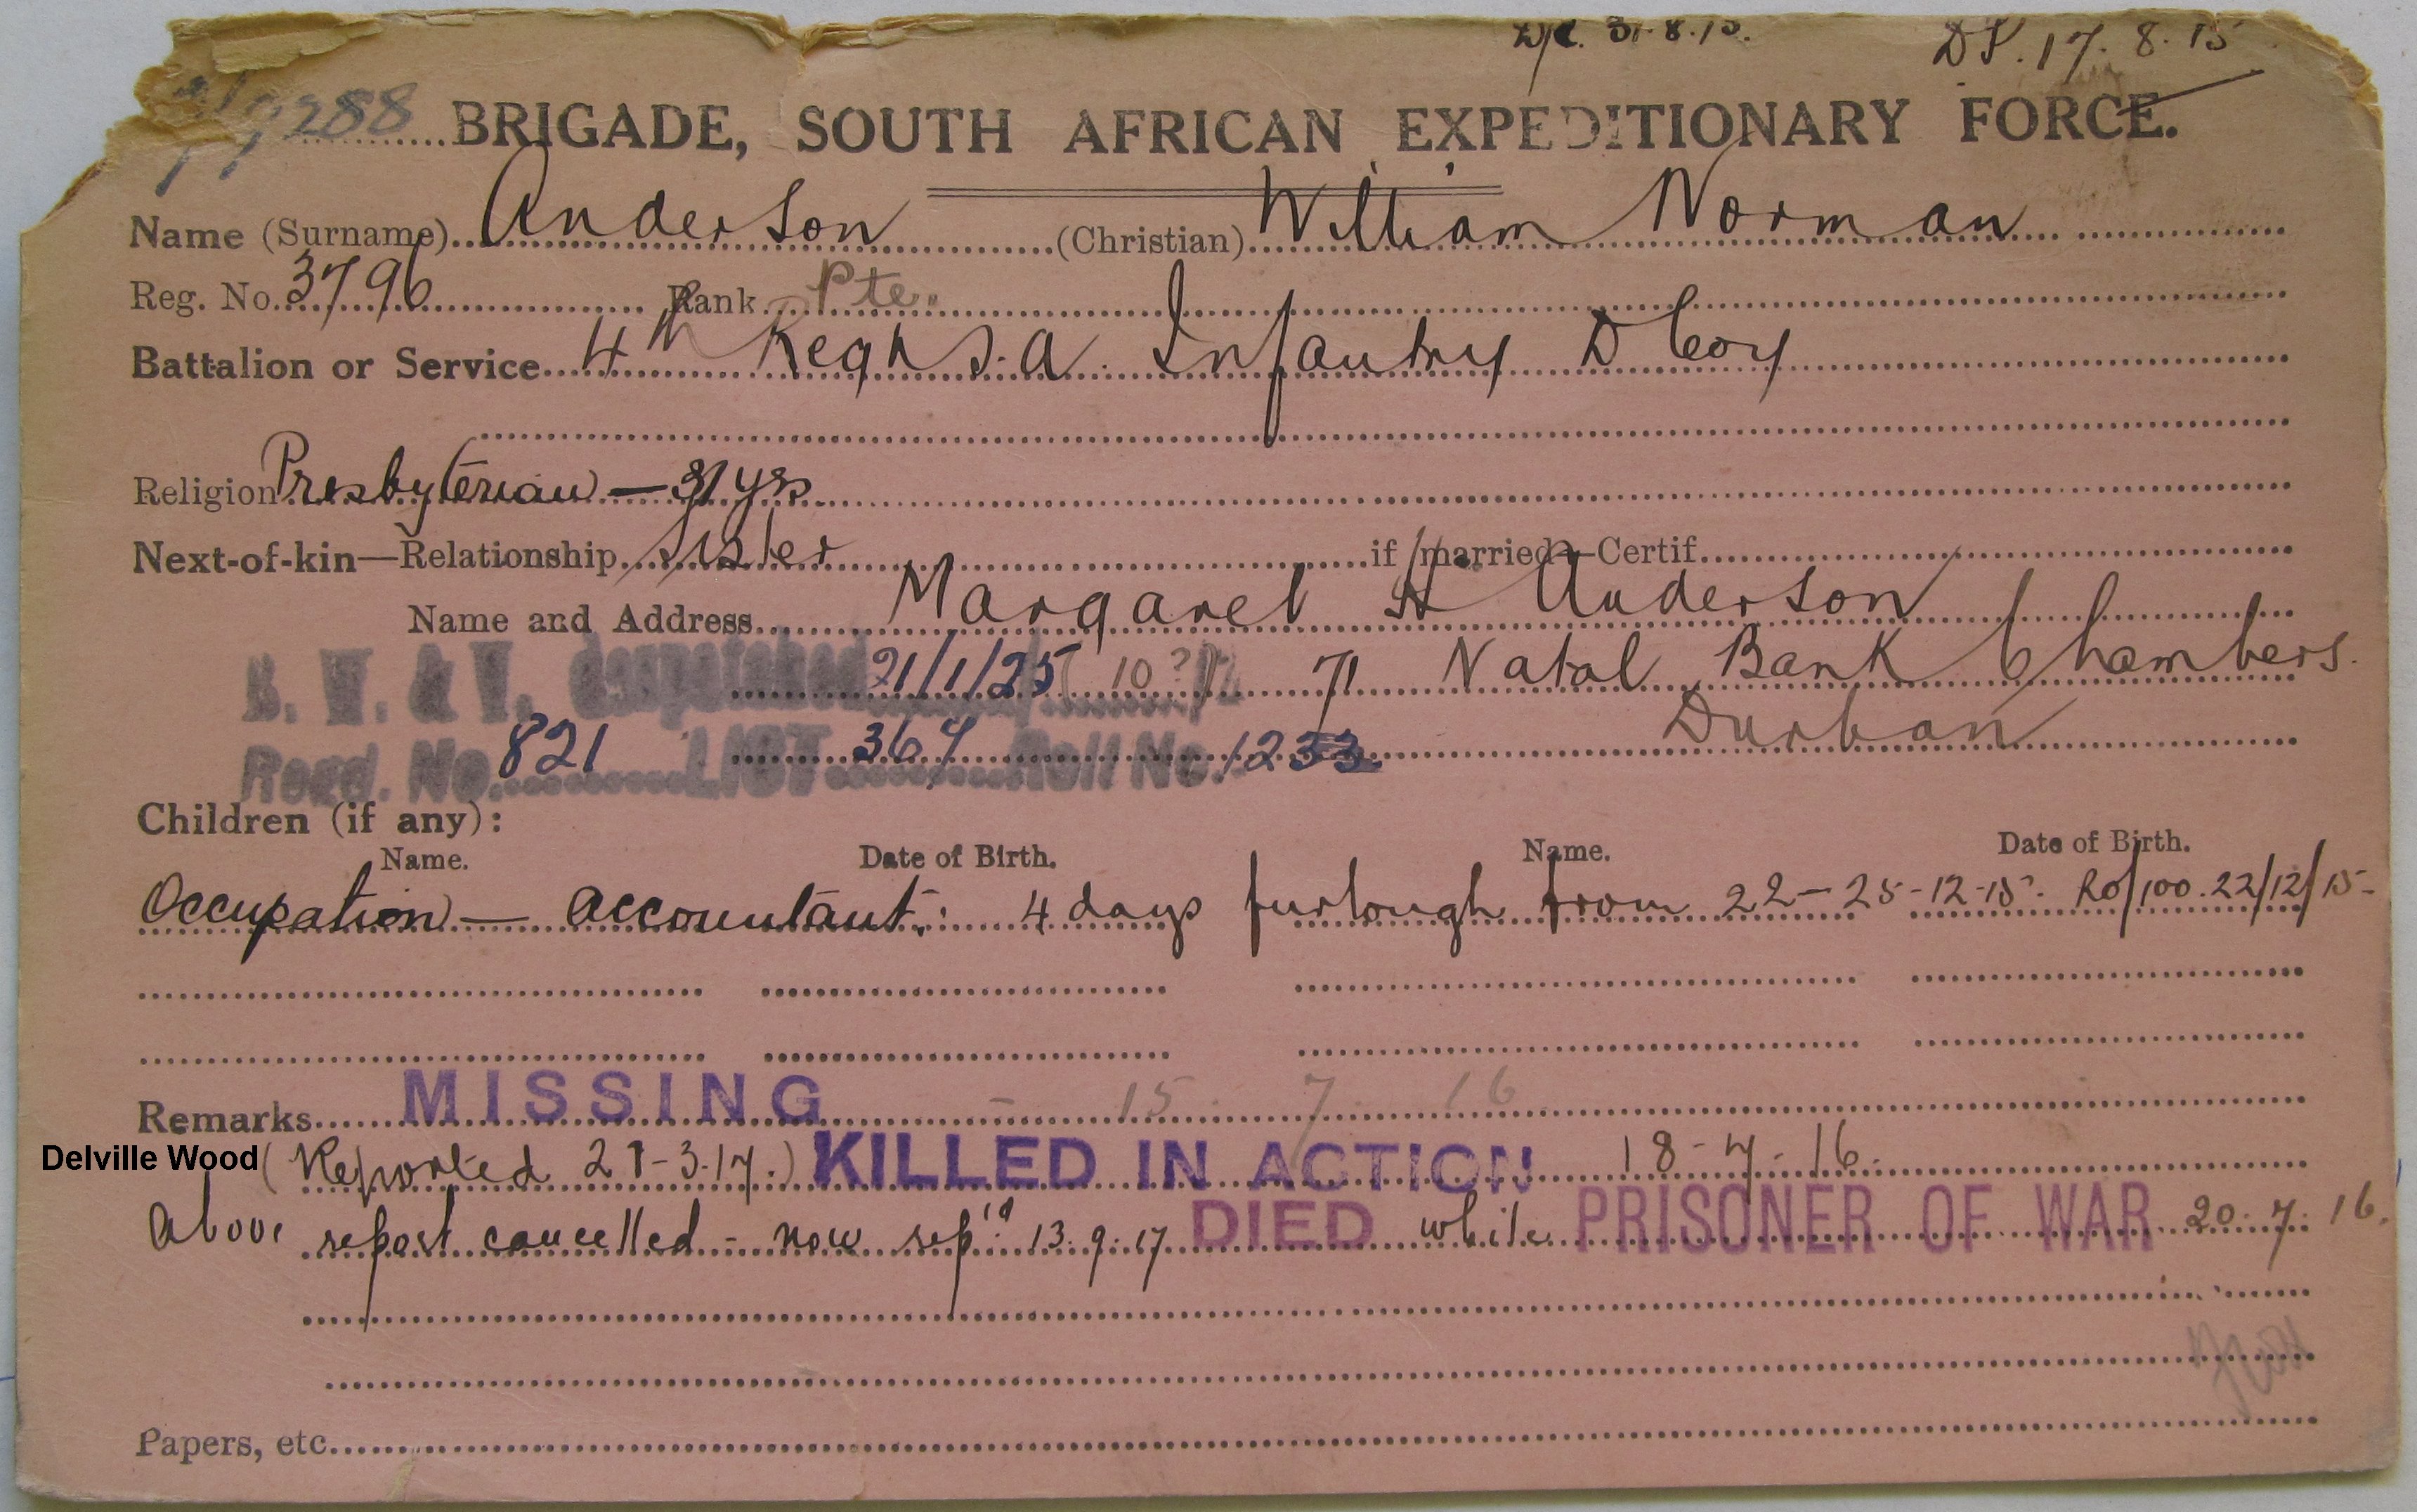 31.8.15. DP. 17.8.15
288 BRIGADE, SOUTH AFRICAN EXPEDITIONARY FORCE.
Name (Surname) Anderson (Christian) William Norman
Reg. No. 3796 Rank Pte.
Battalion or Service 4th Regt S.A. Infantry D Coy
Religion Presbyterian — 31 yrs
Next-of-kin—Relationship Sister if married—Certif.
Name and Address Margaret H Anderson
B. W. & V. despatched 21/1/25 10? 71 Natal Bank Chambers.
Recd. No. 821 LIST 364 Roll No. 1233 Durban
Children (if any):
Name. Date of Birth. Name. Date of Birth.
Occupation — Accountant. 4 days furlough from 22-25-12-15. Ro/100. 22/12/15
Remarks MISSING - 15 7 16
Delville Wood (Reported 21-3-17.) KILLED IN ACTION 18-7-16.
Above report cancelled - now rep'd 13.9.17 DIED while PRISONER OF WAR 20.7.16.
Papers, etc.